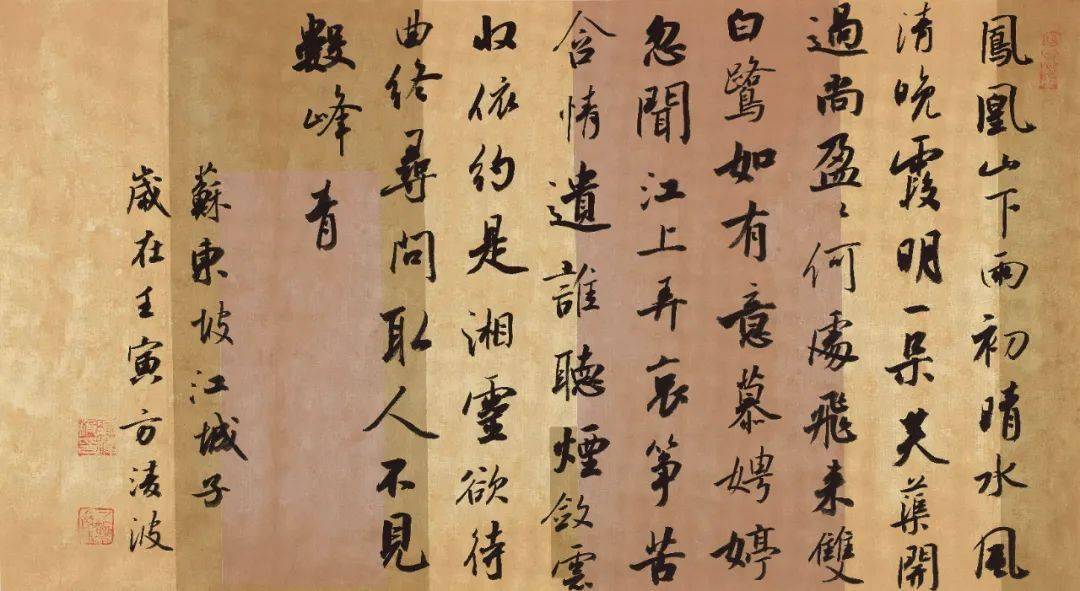 鳳凰山下雨初晴水風
清晚霞明一朵芙蕖開
過尚盈〻何處飛來雙
白鷺如有意慕娉婷
忽聞江上弄哀箏苦
含情遣誰聽煙斂雲
收依約是湘靈欲待
曲終尋問取人不見
數峰青
蘇東坡江城子
歲在壬寅方淩波